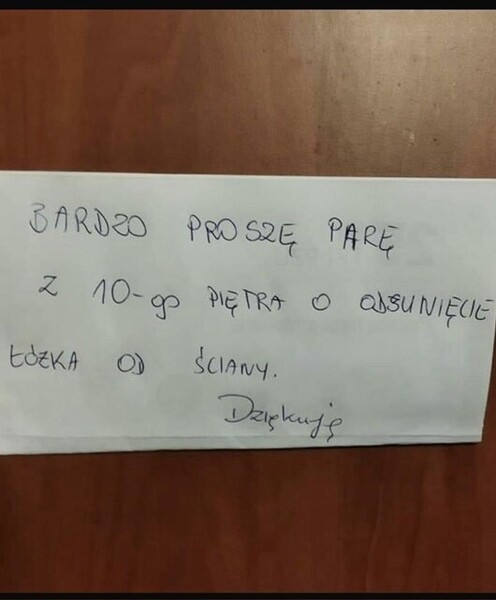 BARDZO PROSZĘ PARĘ
Z 10-go PIĘTRA O ODSUNIĘCIE
ŁÓŻKA OD ŚCIANY.
Dziękuję